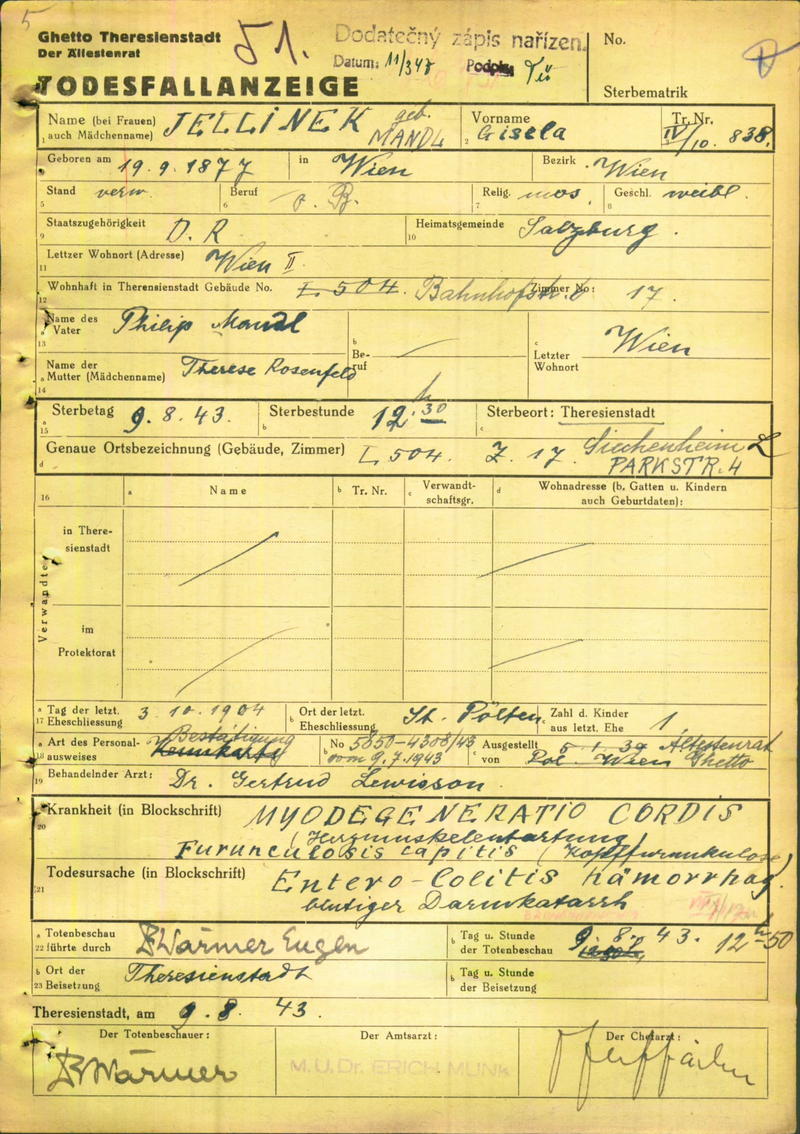 5
Ghetto Theresienstadt
Der Ältestenrat
51.
Dodatečný zápis nařízen.
Datum: 11/3 47 Podpis
No.
Sterbematrik
TODESFALLANZEIGE
1 Name (bei Frauen) auch Mädchenname) JELLINEK geb. MANDL
2 Vorname Gisela
Tr. Nr. IV/10. 838.
Geboren am 19.9.1877 in Wien Bezirk Wien
5 Stand verw. 6 Beruf o. B. 7 Relig. mos. 8 Geschl. weibl.
9 Staatszugehörigkeit D. R 10 Heimatsgemeinde Salzburg.
11 Letzter Wohnort (Adresse) Wien II
12 Wohnhaft in Theresienstadt Gebäude No. L 504. Bahnhofstr. 6 Zimmer No: 17.
a 13 Name des Vater Philip Mandl
b Beruf
c Letzter Wohnort Wien
a 14 Name der Mutter (Mädchenname) Therese Rosenfeld
a 15 Sterbetag 9.8.43. b Sterbestunde 12.30 h c Sterbeort: Theresienstadt
d Genaue Ortsbezeichnung (Gebäude, Zimmer) L 504. Z. 17. Siechenheim L
PARKSTR. 4
16 a Name b Tr. Nr. c Verwandtschaftsgr. d Wohnadresse (b. Gatten u. Kindern auch Geburtdaten):
Verwandte
in Theresienstadt
im Protektorat
a 17 Tag der letzt. Eheschliessung 3.10.1904 b Ort der letzt. Eheschliessung St. Pölten. Zahl d. Kinder aus letzt. Ehe 1
a 18 Art des Personalausweises Kennkarte Bestätigung b No 5850-4308/43 vom 9.7.1943 c Ausgestellt von Pol. Wien Ältestenrat Ghetto
19 Behandelnder Arzt: Dr. Gertrud Lewisson.
20 Krankheit (in Blockschrift) MYODEGENERATIO CORDIS
(Herzmuskelentartung)
Furunculosis capitis (Kopffurunkulose)
21 Todesursache (in Blockschrift) Entero-Colitis hämorrhag.
blutiger Darmkatarrh
a 22 Totenbeschau führte durch Dr Wärmer Eugen b Tag u. Stunde der Totenbeschau 9.8.43. 12 h 50
b 23 Ort der Beisetzung Theresienstadt b Tag u. Stunde der Beisetzung
Theresienstadt, am 9.8.43.
Der Totenbeschauer: Der Amtsarzt: Der Chefarzt:
Dr Wärmer
M. U. Dr. ERICH MUNK